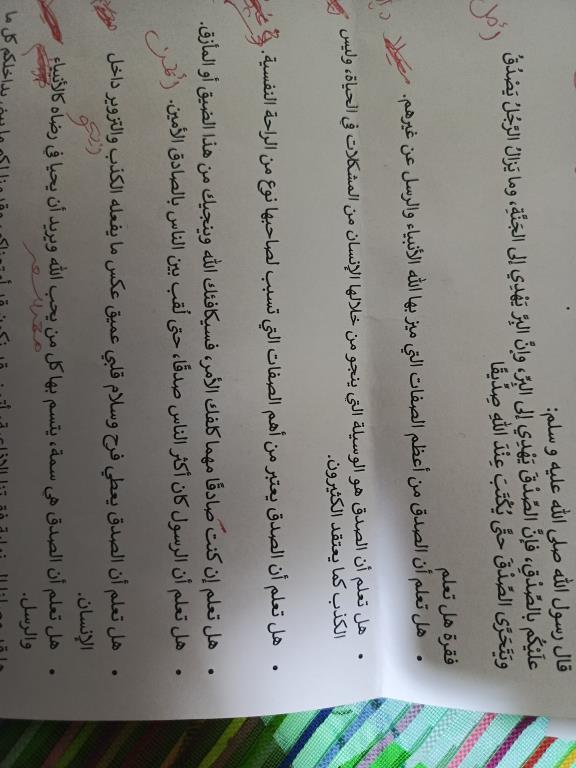 قال رسول الله صلى الله عليه وسلم:
عَلَيْكُم بالصِّدْقِ، فإنَّ الصِّدْقَ يَهْدِي إلى البِرِّ، وإنَّ البِرَّ يَهْدِي إلى الجَنَّةِ، وما يَزالُ الرَّجُلُ يَصْدُقُ
ويَتَحَرَّى الصِّدْقَ حتَّى يُكْتَبَ عِنْدَ اللهِ صِدِّيقًا
فقرة هل تعلم
• هل تعلم أن الصدق من أعظم الصفات التي ميز بها الله الأنبياء والرسل عن غيرهم.
• هل تعلم أن الصدق هو الوسيلة التي ينجو من خلالها الإنسان من المشكلات في الحياة، وليس
الكذب كما يعتقد الكثيرون.
• هل تعلم أن الصدق يعتبر من أهم الصفات التي تسبب لصاحبها نوع من الراحة النفسية.
• هل تعلم إن كنت صادقًا مهما كلفك الأمر، فسيكافئك الله وينجيك من هذا الضيق أو المأزق.
• هل تعلم أن الرسول كان أكثر الناس صدقًا، حتى لُقب بين الناس بالصادق الأمين.
• هل تعلم أن الصدق يعطي فرح وسلام قلبي عميق عكس ما يفعله الكذب والتزوير داخل
الإنسان.
• هل تعلم أن الصدق هي سمة، يتسم بها كل من يحب الله ويريد أن يحيا في رضاه كالأنبياء
والرسل.